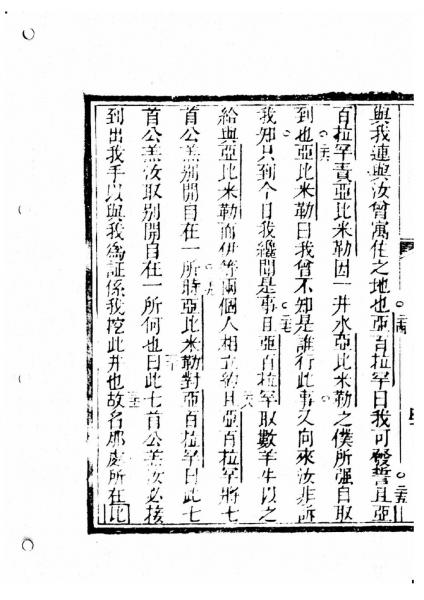 與我連與汝曾寓住之地也○二四亞百拉罕曰我可發誓○二五且亞
百拉罕責亞比米勒因一井水亞比米勒之僕所强自取
到也○二六亞比米勒曰我曾不知是誰行此事又向來汝非訴
我知只到今日我纔聞是事○二七且亞百拉罕取數羊牛以之
給與亞比米勒而伊等兩個人相立約○二八且亞百拉罕將七
首公羔別開自在一所○二九時亞比米勒對亞百拉罕曰此七
首公羔汝取別開自在一所何也三十曰此七首公羔汝必接
到出我手以與我為証係我挖此井也三一故名那處所在比